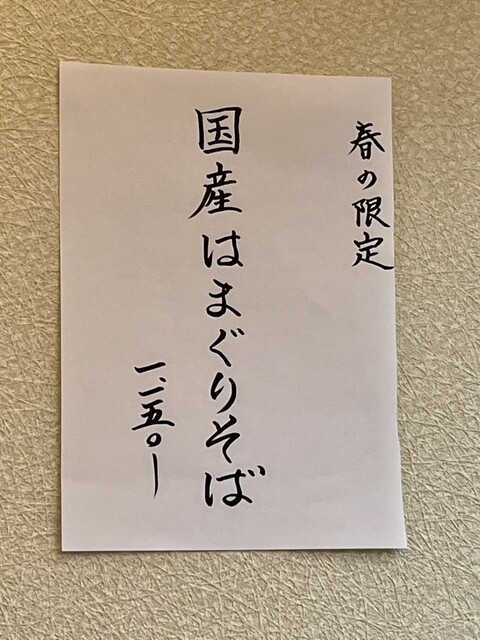 春の限定
国産はまぐりそば
一、二五〇ー